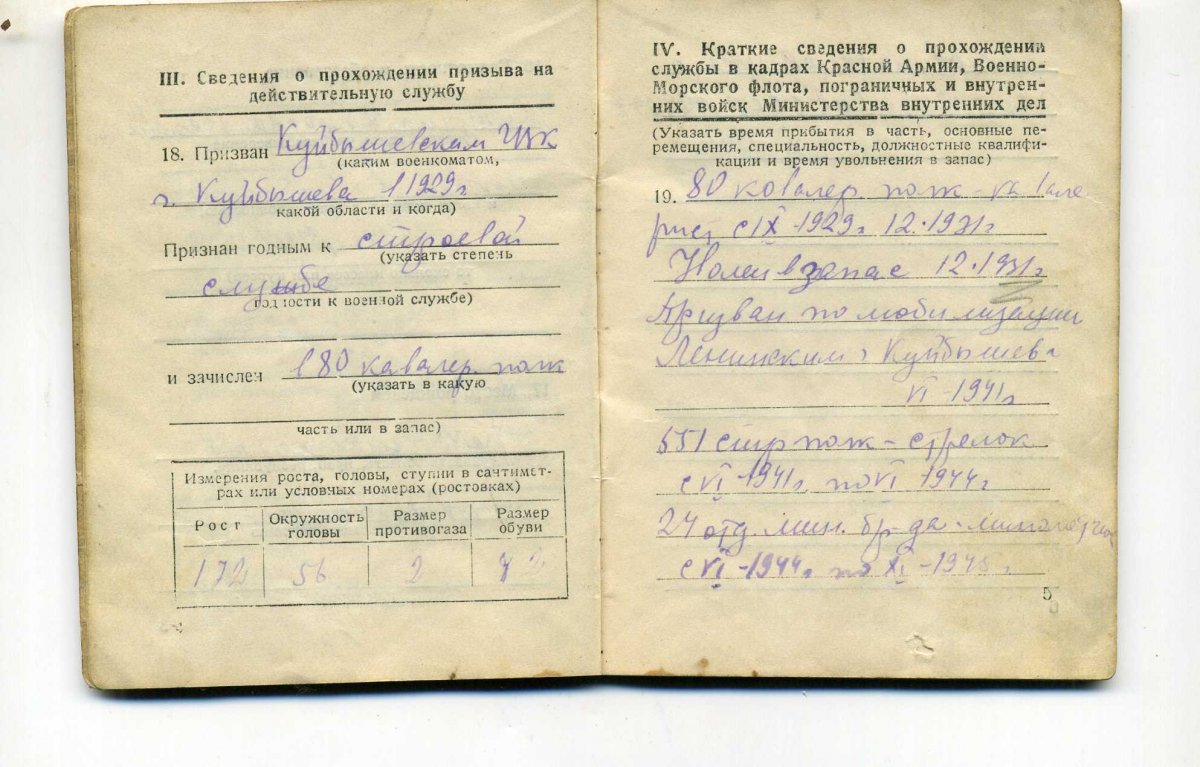 III. Сведения о прохождении призыва на
действительную службу
18. Призван Куйбышевским ГВК
(каким военкоматом,
г. Куйбышева в 1929г
какой области и когда)
Признан годным к строевой
(указать степень
службе
годности к военной службе)
и зачислен в 80 кавалер. полк
(указать в какую
часть или в запас)
Измерения роста, головы, ступни в сантимет-
рах или условных номерах (ростовках)
Рост Окружность головы Размер противогаза Размер обуви
172 56 2
IV. Краткие сведения о прохождении
службы в кадрах Красной Армии, Военно-
Морского флота, пограничных и внутрен-
них войск Министерства внутренних дел
(Указать время прибытия в часть, основные пе-
ремещения, специальность, должностные квалифи-
кации и время увольнения в запас)
19. 80 кавалер. полк - кавале
рист с IX-1929г 12.1931г
Уволен в запас 12.1931г
Призван по мобилизации
Ленинским г Куйбышева
VI-1941г
551 стр полк - стрелок
с VI-1941г. по VI 1944г
24 отд. мин. бр-да -
с VI-1944г по XI-1945г.
5